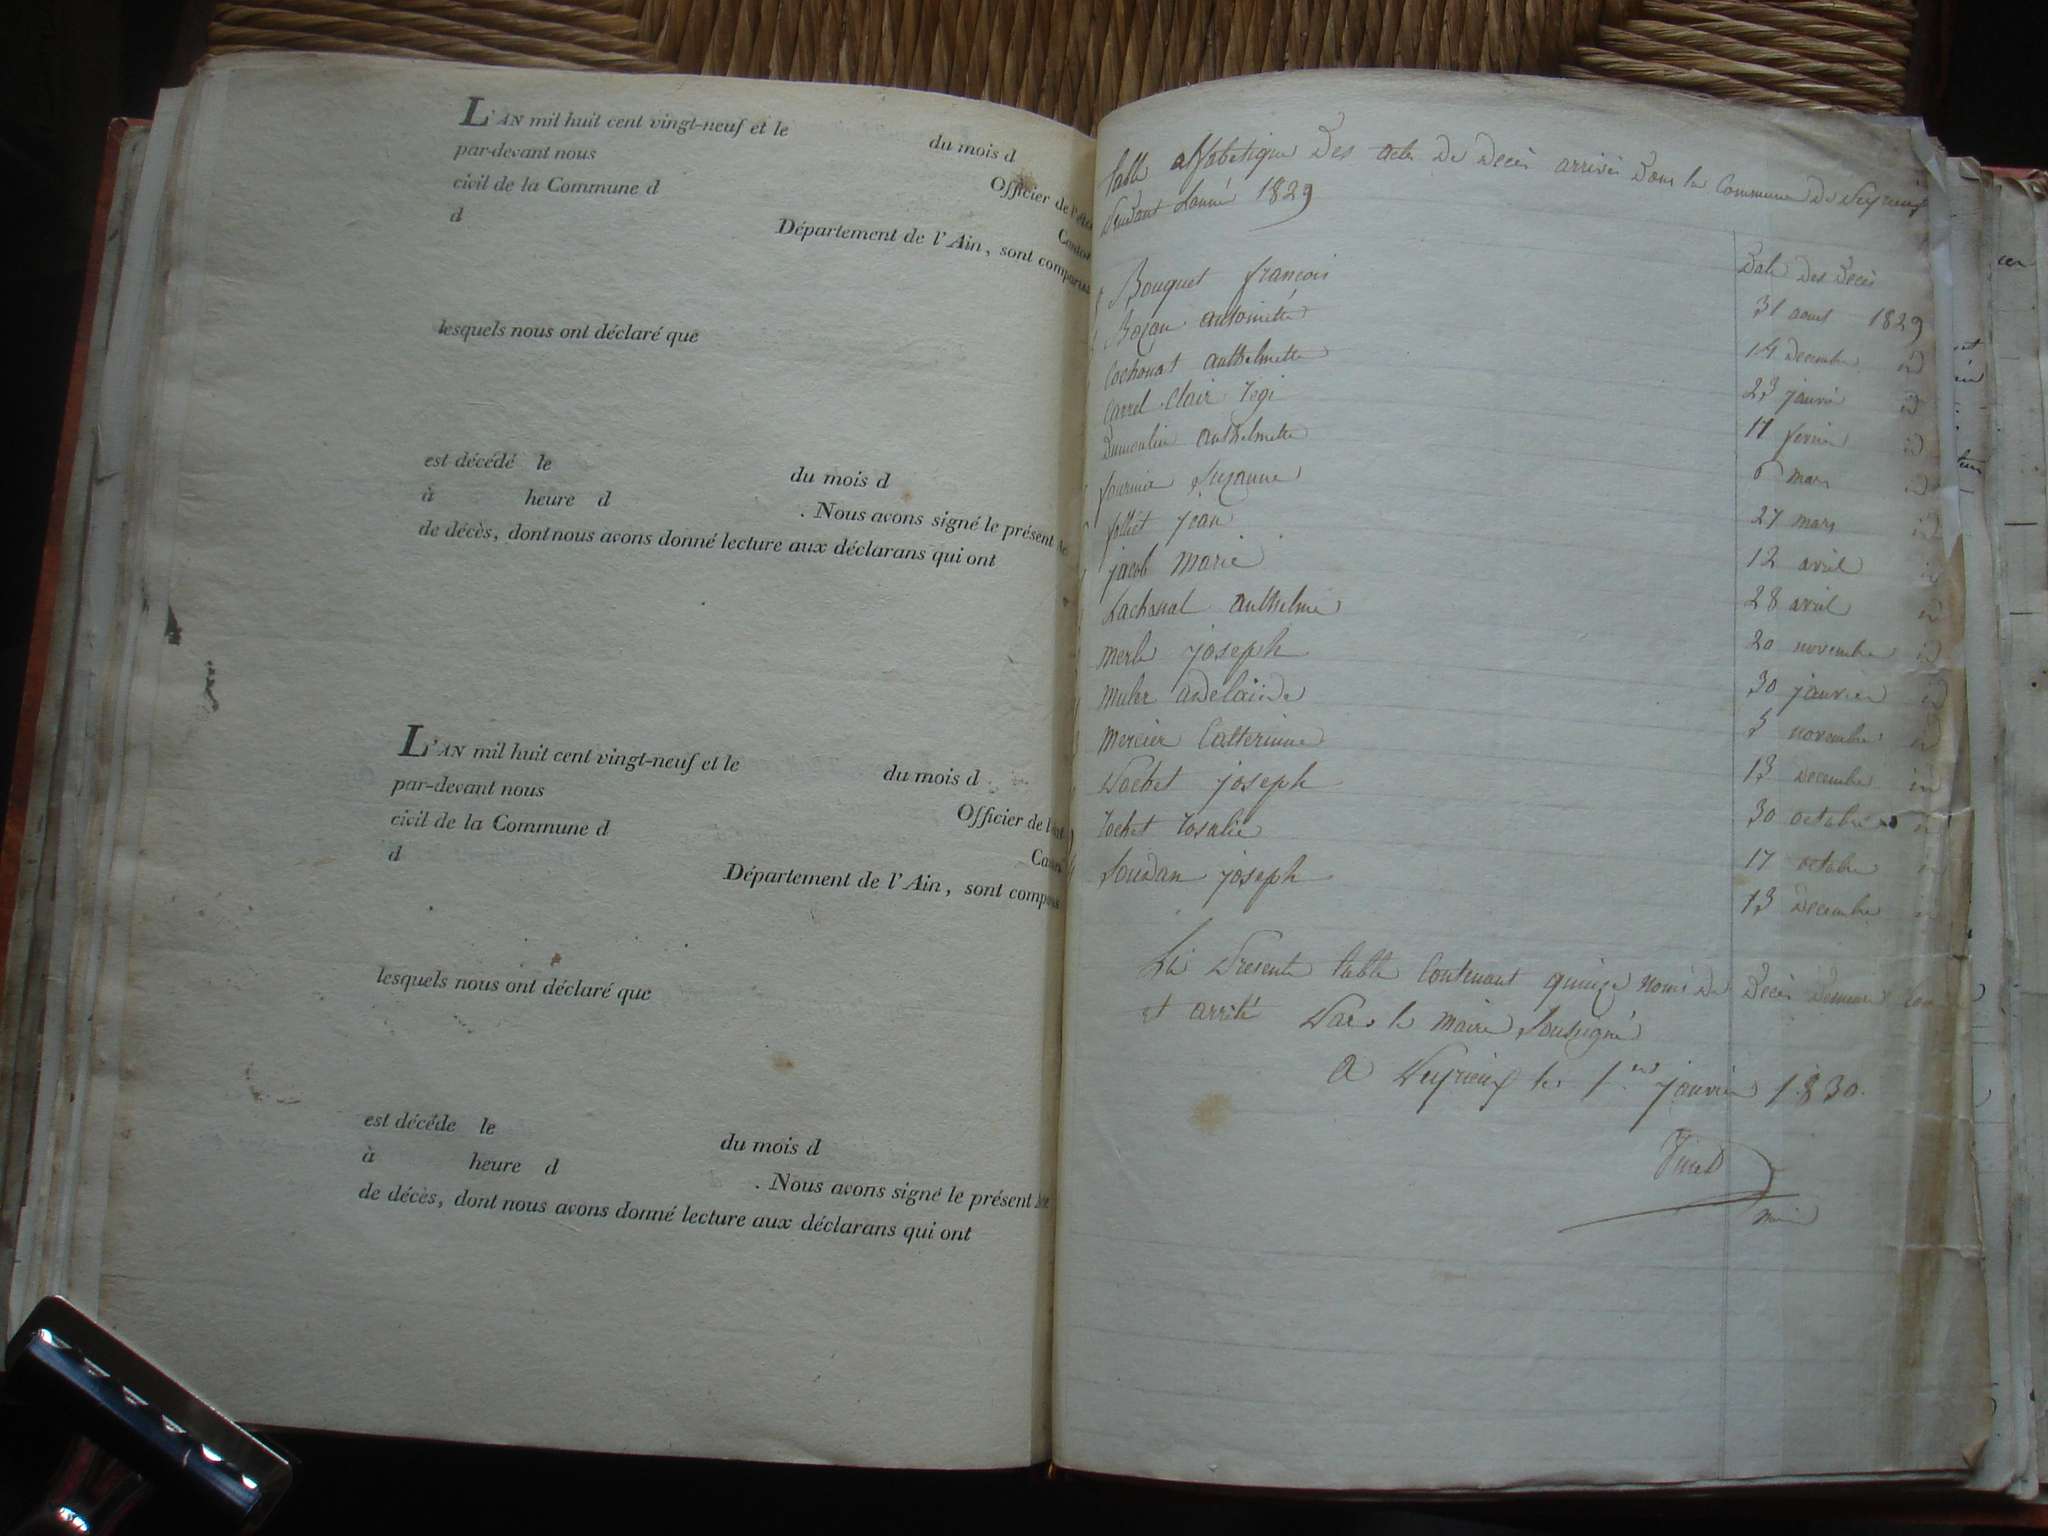 L'AN mil huit cent vingt-neuf et le du mois d
par-devant nous Officier de l'éta
civil de la Commune d Canton
d Département de l'Ain, sont comparus
lesquels nous ont déclaré que
est décédé le du mois d
à heure d . Nous avons signé le présent
de décès, dont nous avons donné lecture aux déclarans qui ont
L'AN mil huit cent vingt-neuf et le du mois d
par-devant nous Officier de l'
civil de la Commune d
d Département de l'Ain, sont comparus
lesquels nous ont déclaré que
est décédé le du mois d
à heure d . Nous avons signé le présent
de décès, dont nous avons donné lecture aux déclarans qui ont
table alfabetique Des actes De Decès arrivés Dans la Commune De Peyrieux
Pendant Lannée 1829
Date Des Decès
Bouquet françois 31 aout 1829
antoinette 14 decembre id
Cochonat anthelmette 23 janvié id
Carrel Clair 17 fevrier id
Dumoulin anthelmette 6 mars id
fournier Suzanne 27 mars id
jean 12 avril id
jacob Marie 28 avril id
Lachonal anthelme 20 novembre id
Merle joseph 30 janvier id
adelaïde 5 novembre id
Mercier Catterinne 13 decembre id
Pochet joseph 30 octobre id
rochet rosalie 17 octobre id
Soudan joseph 13 Decembre id
La Presente table Contenant quinze noms De Decès Demeure
et arrêté Par le maire Soussigné
a Peyrieux le 1er janvier 1830.
maire